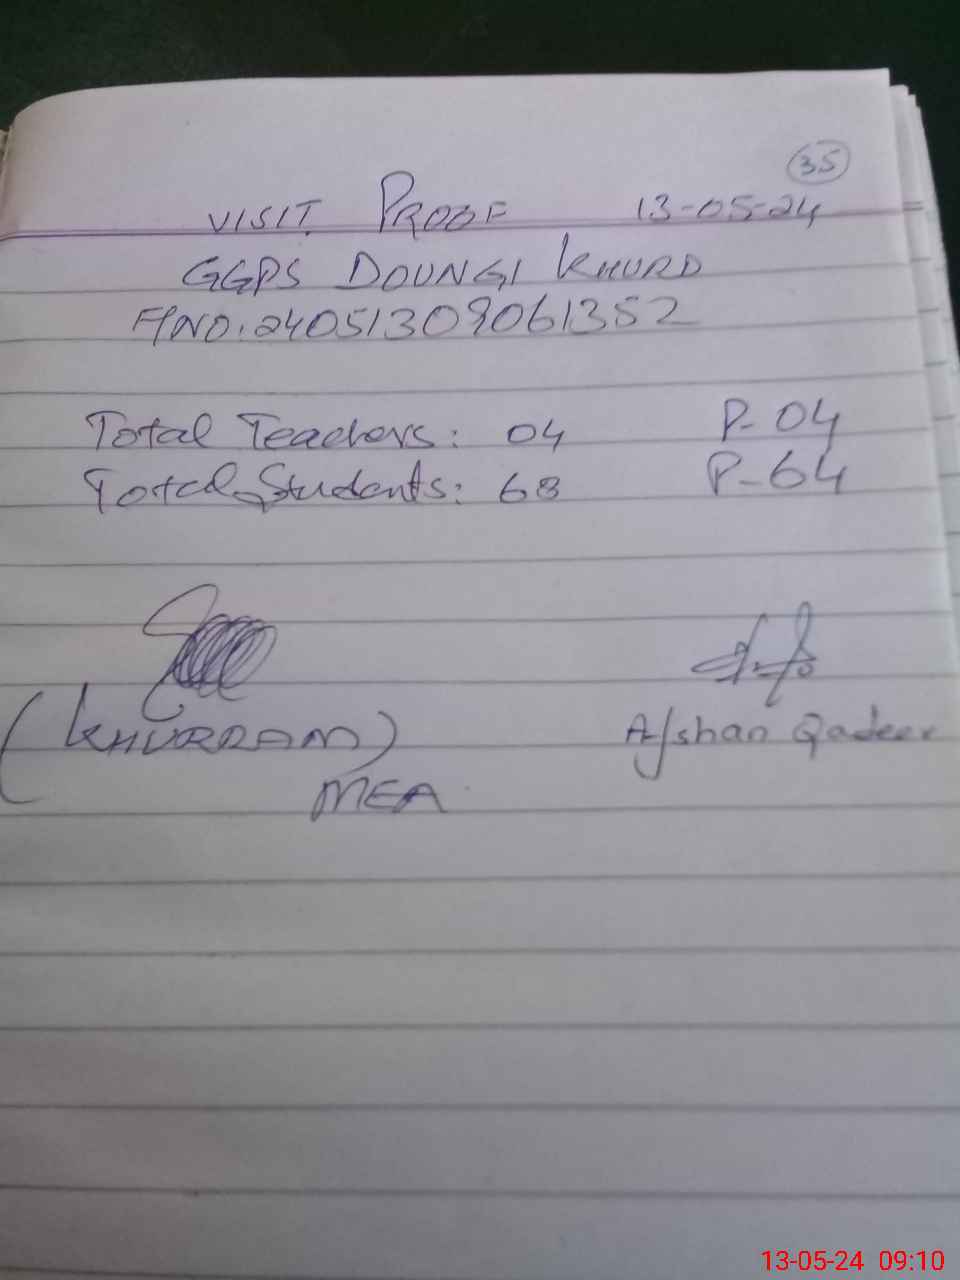 35
VISIT PROOF 13-05-24
GGPS DOUNGI KHURD
F/NO: 24051309061352
Total Teachers: 04 P-04
Total Students: 68 P-64
(KHURRAM) Afshan Qadeer
MEA
13-05-24 09:10